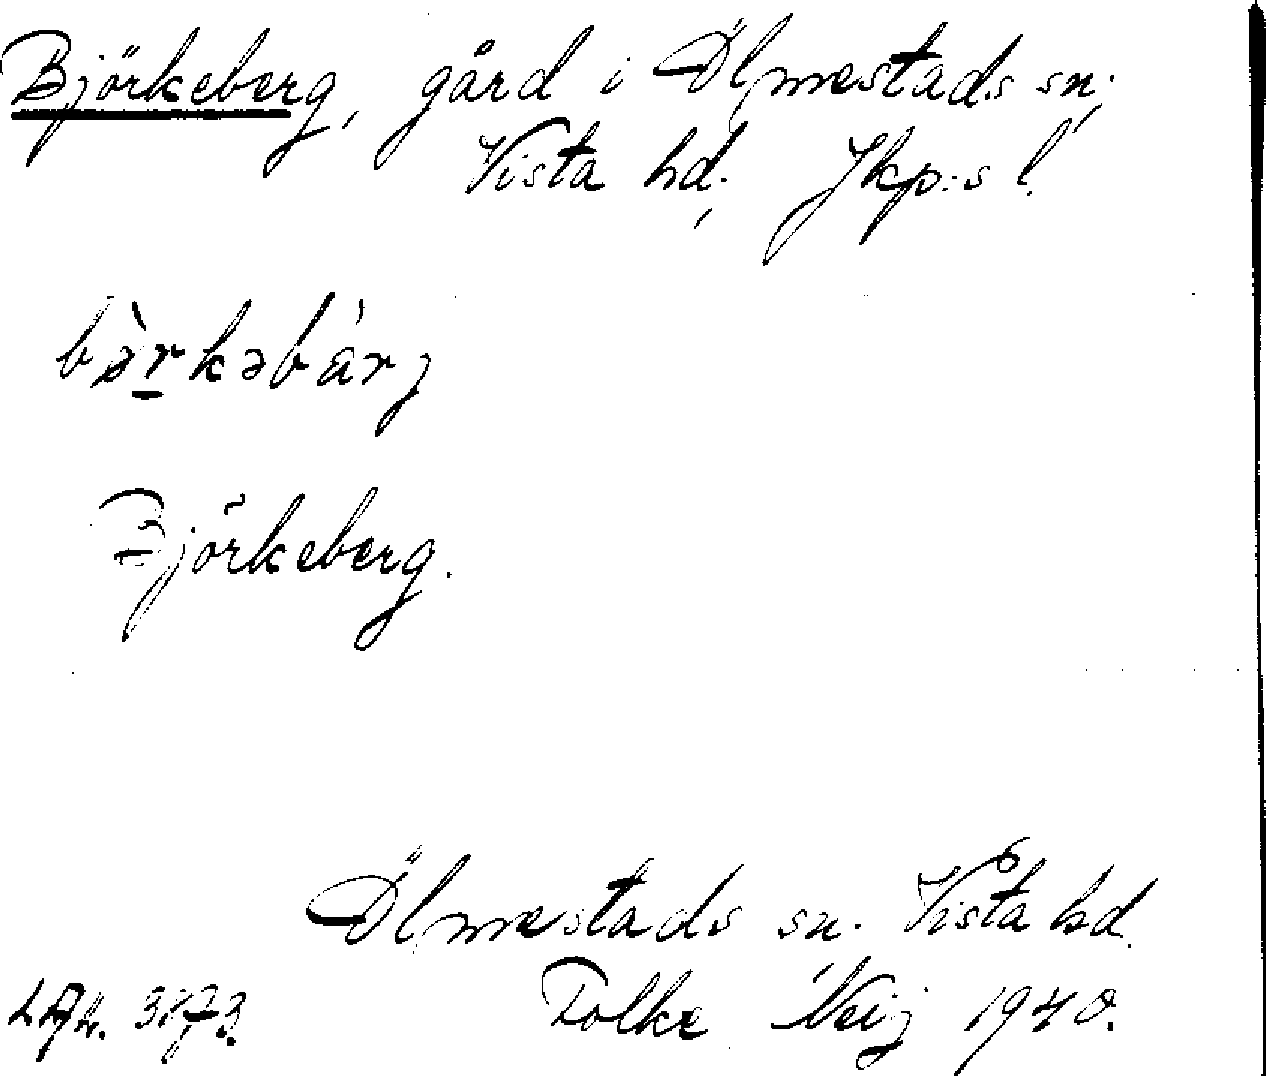 Björkeberg, gård i Ölmestads sn,
Vista hd, Jkp:s l.
bə̀rkəbárj
Björkeberg.
Ölmestads sn. Vista hd.
Folke Neij 1940.